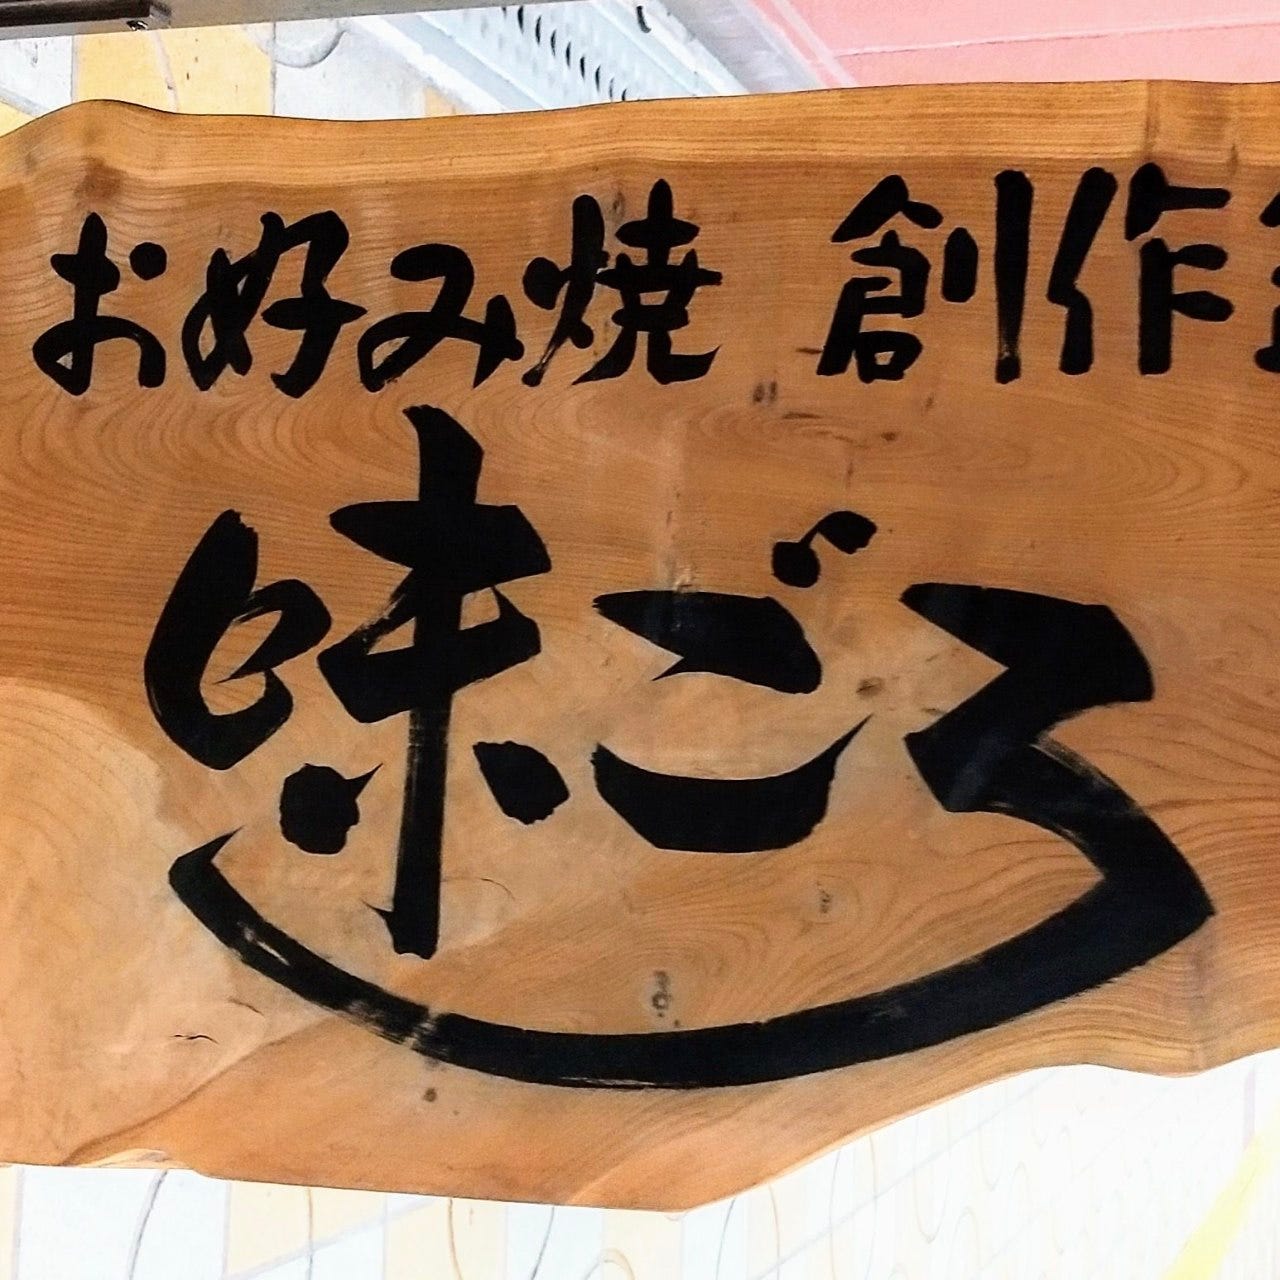 お好み焼 創作
味ごろ